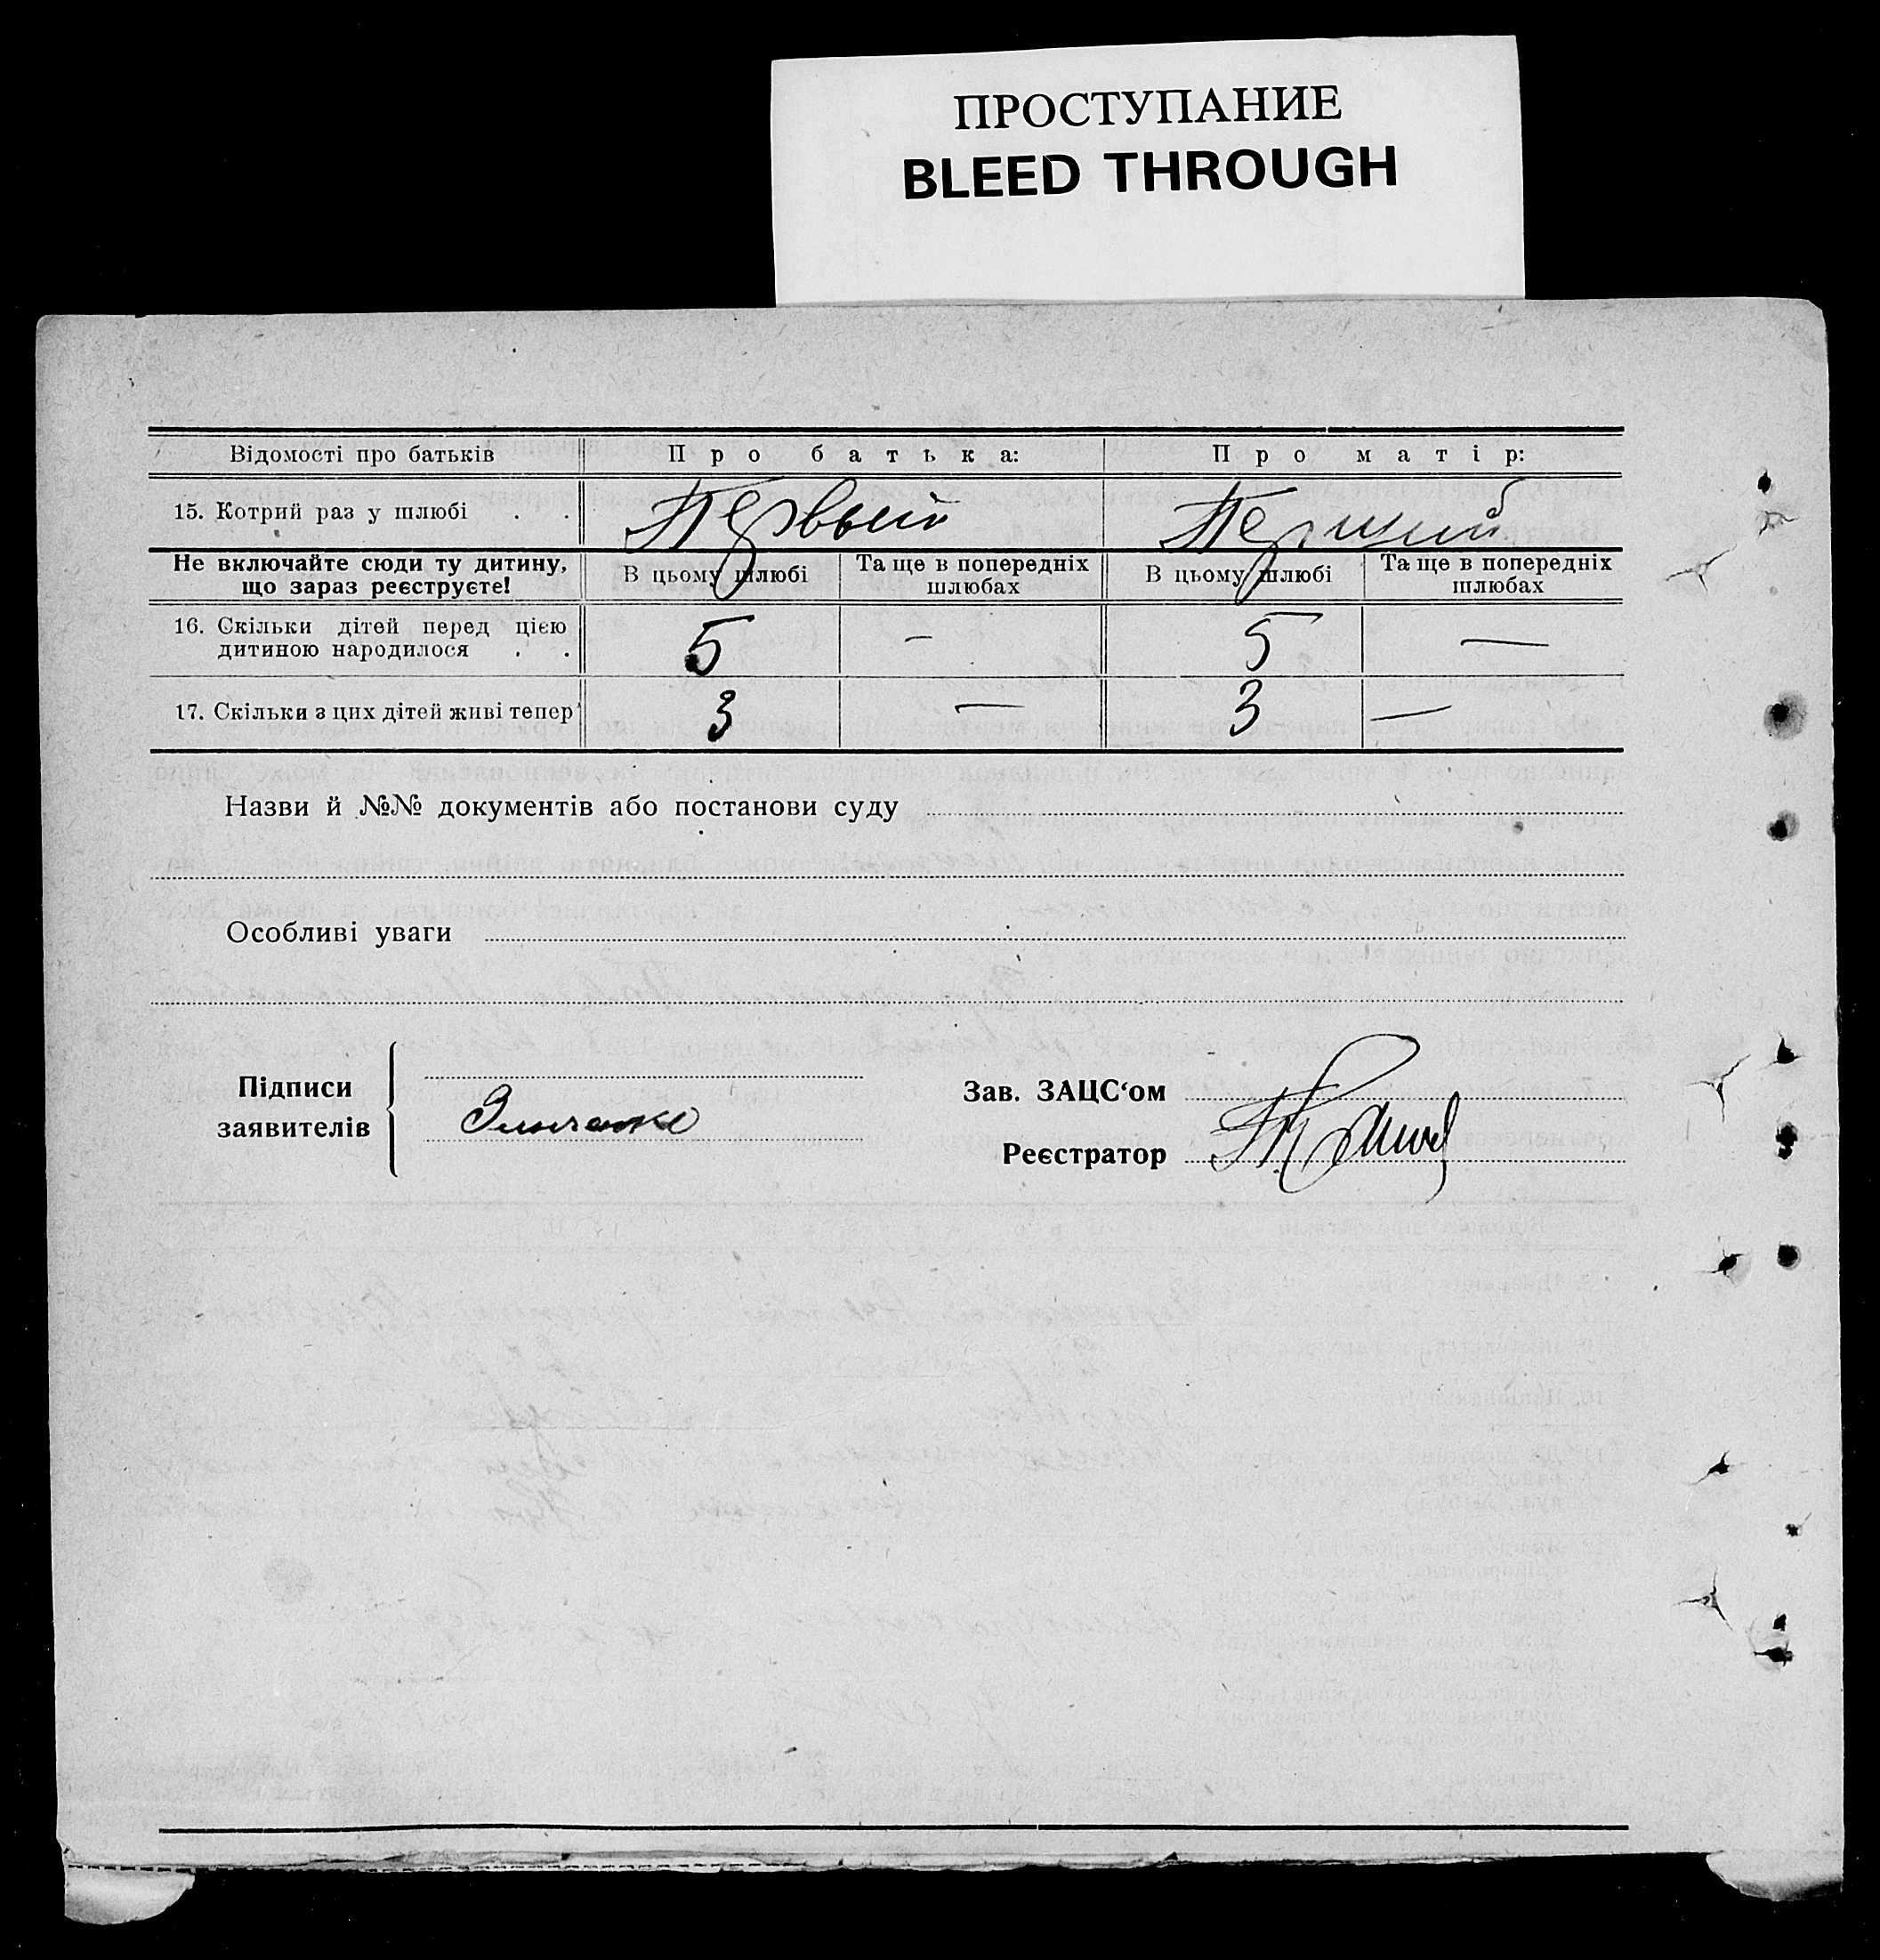 ПРОСТУПАНИЕ
BLEED THROUGH
Відомості про батьків Про батька: Про матір:
15. Котрий раз у шлюбі . . Первый Перший
Не включайте сюди ту дитину, що зараз реєструєте! В цьому шлюбі Та ще в попередніх шлюбах В цьому шлюбі Та ще в попередніх шлюбах
16. Скільки дітей перед цією дитиною народилося . . 5 — 5 —
17. Скільки з цих дітей живі тепер 3 — 3 —
Назви й №№ документів або постанови суду
Особливі уваги
Підписи заявителів
Зав. ЗАЦС‘ом
Реєстратор